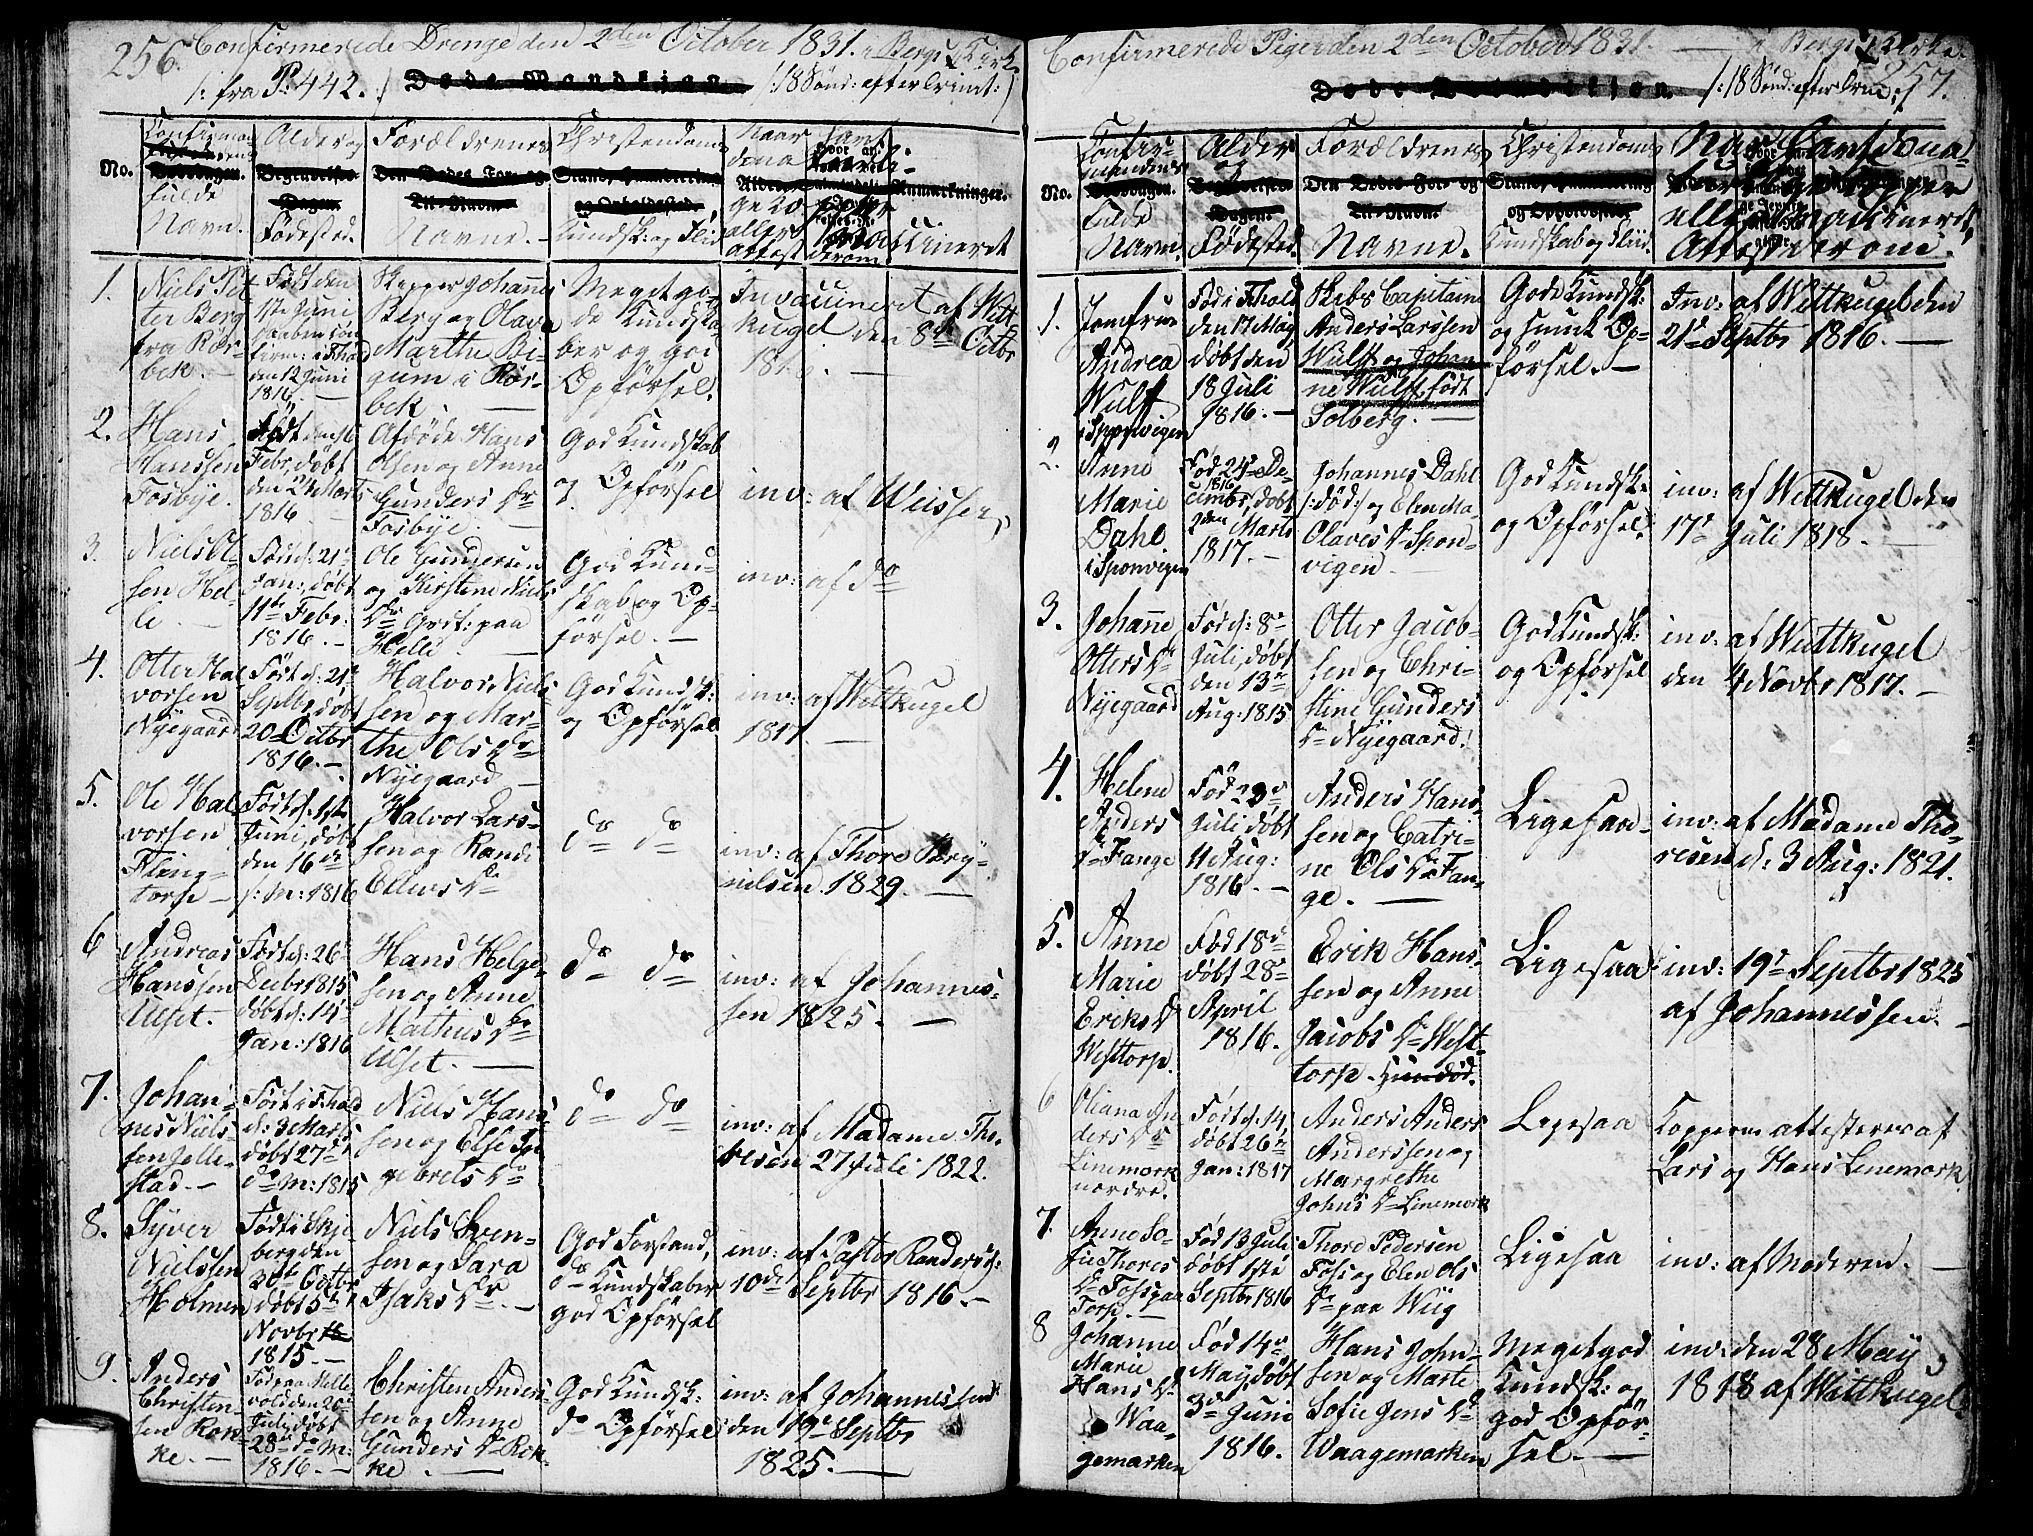 256. Confirmerede Drenge den 2den October 1831. i Bergs Kirke
/: fra P: 442. :/ Døde Mandkjøn /:18 Sønd: efter Trinit:/
No.
Confirman-
dens
fulde
Navn.
Alder og
Begravelses-
Dagen.
Fødested.
Forældrenes
Den Dødes For- og
Til-Navn.
Navne.
Christendoms
Stand, Haandtering
og Opholdssted.
Kundsk: og Flid
Naar
Anmærkninger.
1.
Niels Pet
ter Berg
fra Rør-
bek. -
Født den
1ste Juni
den 12 Juni
1816. -
Skipper Johannes
Berg og Olava
Marthe Bi-
gum i Rør-
bek. -
Meget go-
de Kundska-
ber og god
Opførsel.
Invaccineret af Witt
kugel den 8de Octbr
2.
Hans
Hanssen
Fosbye.
Født den 16
Febr, døbt
den 24 Marts
1816
Afdøde Hans
Olsen og Anne
Gunders Dr
Fosbye.
God Kundskab
og Opførsel
inv: af Weissen,
3.
Niels Ol-
sen Hel-
le. -
Fød d: 21de
Jan:, døbt
11te Febr.
1816. -
Ole Gundersen
og Kirsten Niels
Dr Grst: paa
Helle
God Kund-
skab og Op-
førsel. -
inv: af do
4.
Otter Hal
vorsen
Nyegaard
Født d: 21de
Septbr, døbt
20 Octbr
1816. -
Halvor Niels
sen og Mar-
the Ols Dr
Nyegaard -
God Kundsk:
og Opførsel
inv: af Wittkugel
1817. -
5.
Ole Hal
vorsen
Fling-
torp -
Født d: 1ste
Juni, døbt
den 16de
s: M: 1816
Halvor Lars-
sen og Randi
Ellevs Dr
do do
inv: af Thore Bry-
nilsen 1829. -
6
Andreas
Hanssen
Ulset.
Født d: 26de
Decbr 1815
døbt d: 14de
Jan: 1816
Hans Helge-
sen og Anne
Mathias Dr
Ulset. -
do do
inv: af Johannes-
sen 1825. -
7.
Johan-
nes Niels-
sen Jelle-
stad. -
Født i Fhald
d: 3 Marts
døbt 27de
do M: 1815
Niels Hans
sen og Else In
gebrets Dr
do do
inv: af Madame Tho-
resen 27 Juli 1822.
8.
Syver
Nielssen
Holmen
Født i Skje-
berg den
30te Octbr
døbt 5te
Novbr
1815. -
Niels Sven-
sen og Sara
Isaks Dr. -
God Forstand,
do Kundskaber
god Opførsel
inv: af Pastor Randers d:
10de Septbr 1816. -
9.
Anders
Christen-
sen Rok-
ke. -
Fød paa Melle-
vold den 20de
Juli, døbt
28de do M:
1816. -
Christen Anders
sen og Anne
Gunders Dr Rok-
ke. -
God Kundsk:
do Opførsel
inv: af Johannessen
den 19de Septbr
1825. -
Confirmerede Piger den 2den October 1831. - i Bergs Kirke.
Døde Qvindekjøn /:18 Sønd: efter Trin:/ 257.
No.
Confir-
mandens
Fulde
Navn.
Alder
og
Begravelses-
Dagen.
Fødested
Forældrenes
Den Dødes For- og
Til-Navn.
Navne.
Christendoms
Stand, Haandtering
og Opholdssted.
Kundskab og Fliid.
1.
Jomfrue
Andrea
Wulff
i Sponvigen
Fød i Fhald
den 17 May
døbt den
18 Juli
1816. -
Skibs Capitaine
Anders Larssen
Wulff og Johan-
ne Wulff, født
Solberg. -
God Kundsk:
og smuk Op-
førsel. -
Inv: af Wittkugel den
21de Septbr 1816. -
2.
Anne
Marie
Dahl
i Sponvigen
Fød 24de De-
1816
cembr, døbt
2den Marts
1817. -
Johannes Dahl
/:død:/ og Elen Ma
Olaves Dr Spon-
vigen -
God Kundsk:
og Opførsel
inv: af Wittkugel den
17de Juli 1818. -
3.
Johanne
Otters Dr
Nyegaard
Fød d: 8de
Juli, døbt
den 13de
Aug: 1815
Otter Jacob-
sen og Chri-
stine Gunders
Dr Nyegaard.
God Kundsk:
og Opførsel
inv: af Wittkugel
den 4 Novbr 1817. -
4.
Helene
Anders
Dr Fange
Fød 23de
Juli, døbt
11 Aug:
1816. -
Anders Hans-
sen og Catri-
ne Ols Dr Fan-
ge. -
Ligesaa
inv: af Madame Tho-
resen d: 3 Aug: 1821.
5.
Anne
Marie
Eriks Dr
Westtorp.
Fød 18de
døbt 28de
April
1816.
Erik Hans-
sen og Anne
Jacobs Dr West-
torp. Hun død.
Ligesaa
inv: 19de Septbr 1825
af Johannessen. -
6
Oliana An
ders Dr
Linemark
nordre.
Født d: 14,
døbt 26de
Jan: 1817
Anders Anders
Anderssen og
Margrethe
Johns Dr Linemark
Ligesaa
Kopperne attesteres af
Lars og Hans Linemark.
7.
Anne So-
fie Thores
Dr Foss paa
Torp. -
Fød 13 Juli
døbt 1ste
Septbr 1816
Thore Pedersen
Foss og Elen Ols
Dr paa Wiig
Ligesaa
inv: af Moderen. -
8
Johanne
Marie
Hans Dr
Waa-
gemarken
Fød 14de
May, døbt
3de Juni
1816.
Hans John-
sen og Marte
Sofie Jens Dr
Waagemarken
Meget god
Kundsk: og
god Opfør-
sel. -
inv: den 28 May
1818 af Wittkugel.